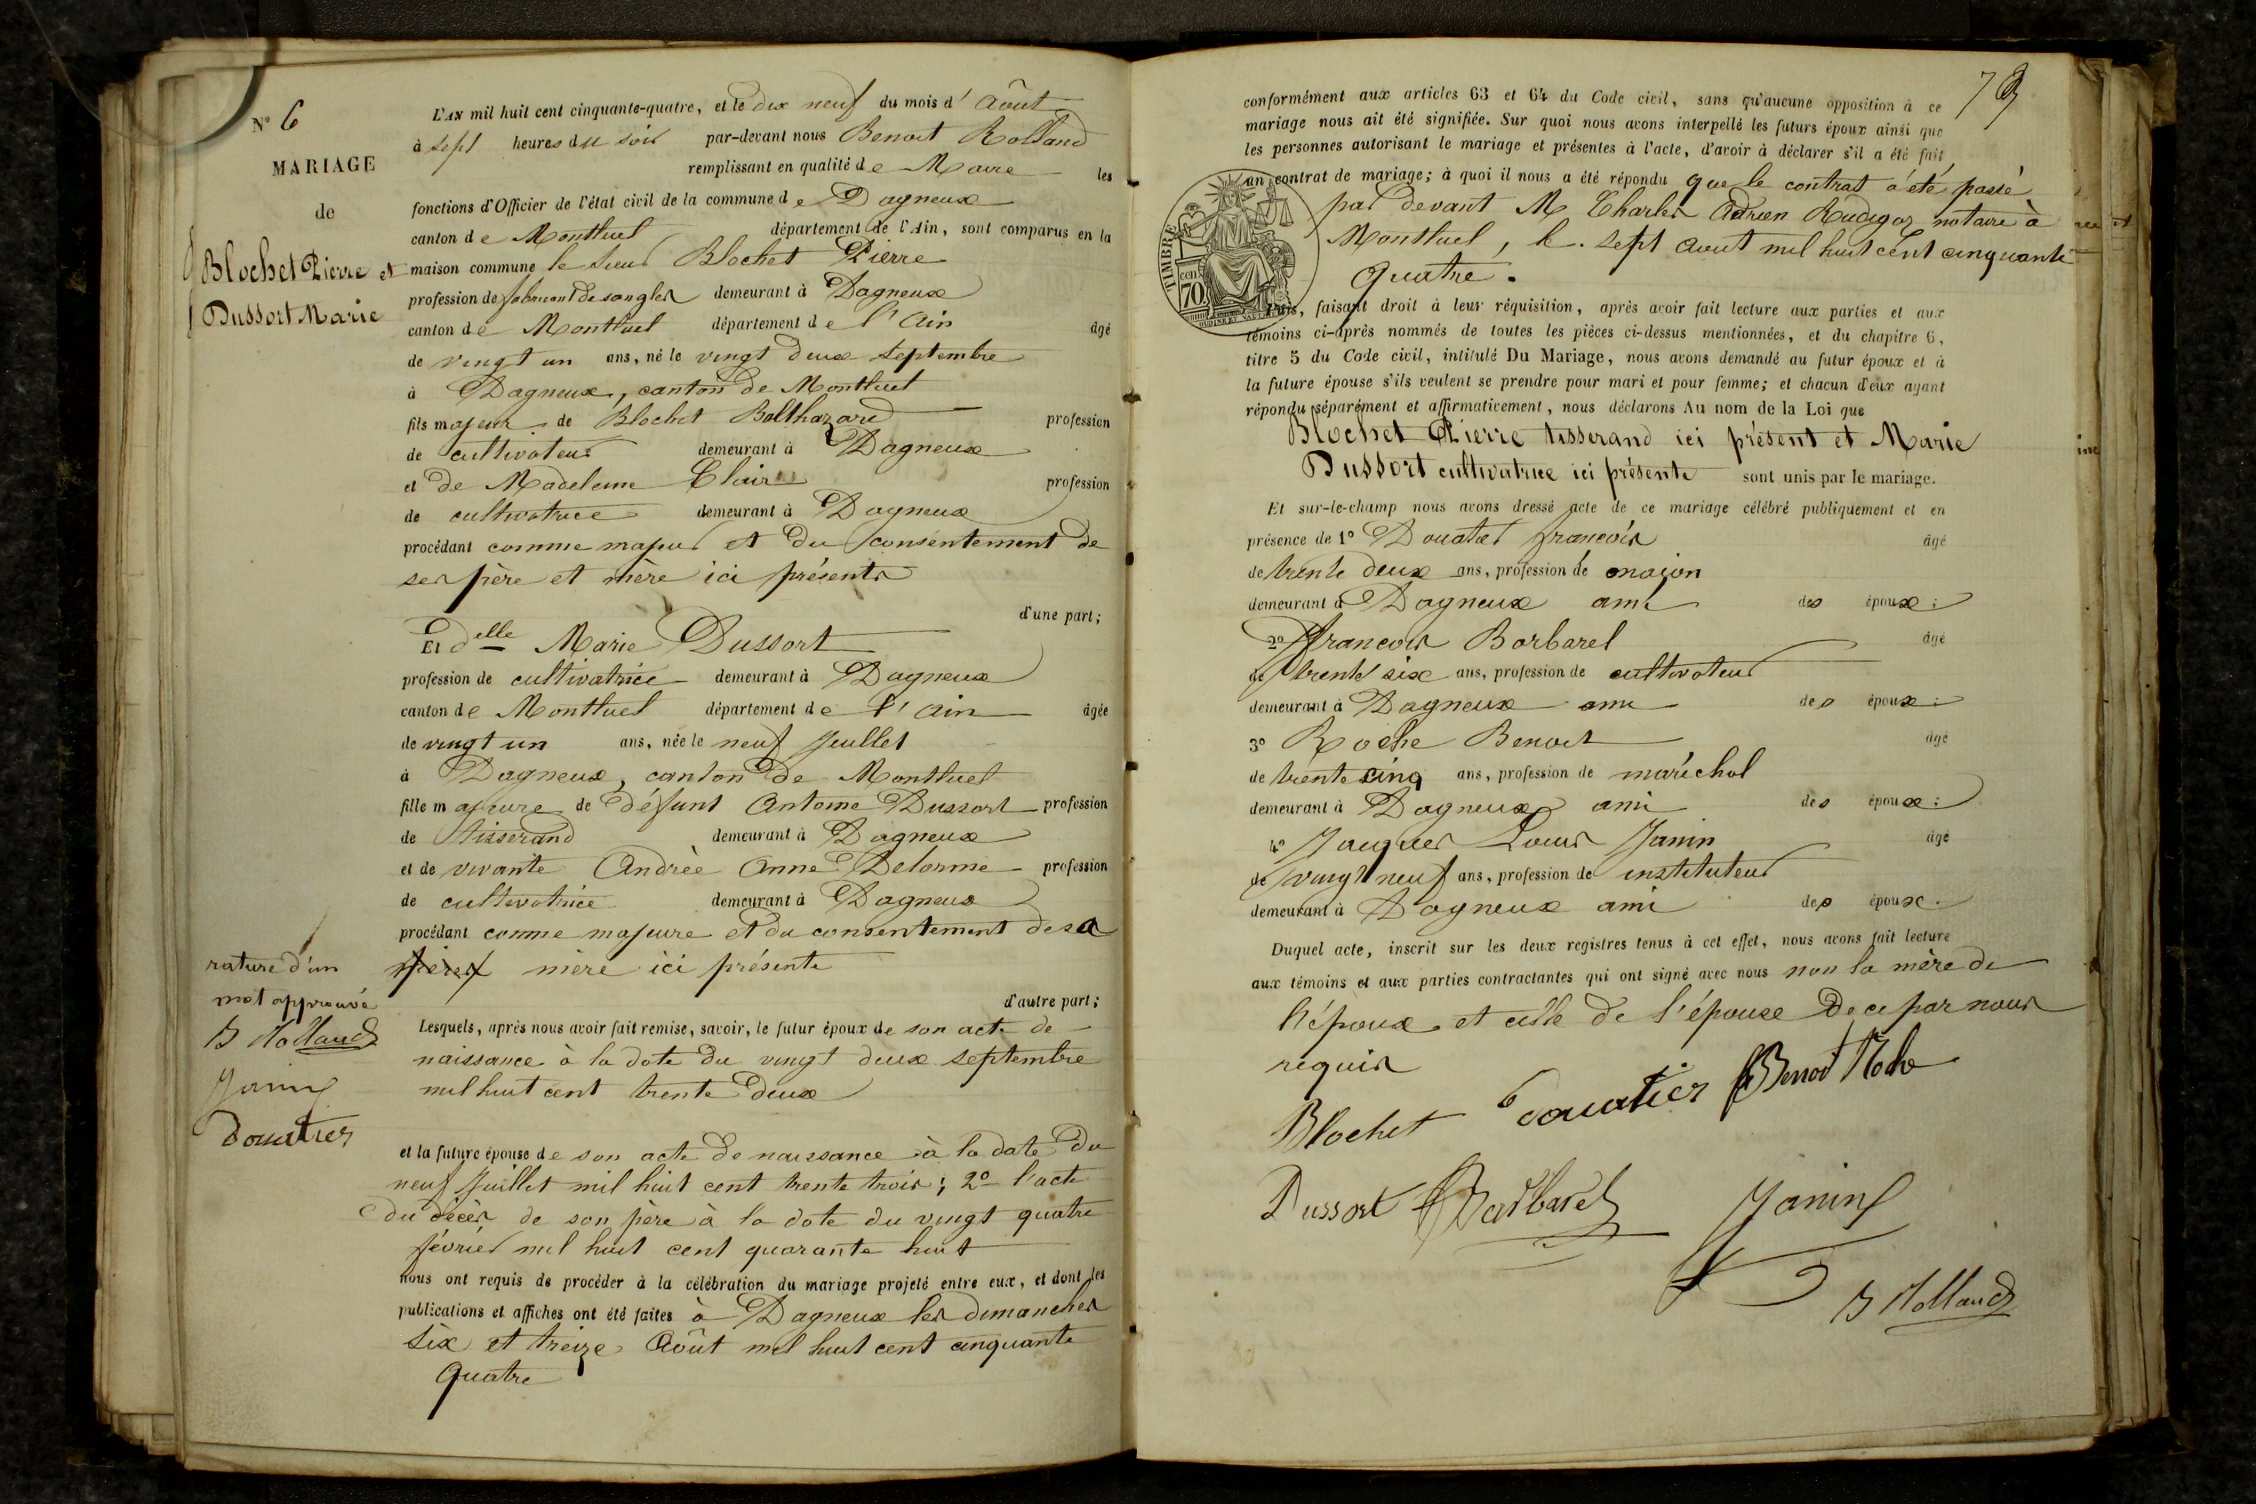 N° 6
MARIAGE
de
Blochet Pierre et
Dussort Marie
L'AN mil huit cent cinquante-quatre, et le dix neuf du mois d'Août
à sept heures du soir par-devant nous Benoit Rolland
remplissant en qualité de Maire les
fonctions d'Officier de l'état civil de la commune de Dagneux
canton de Montluel département de l'Ain, sont comparus en la
maison commune le sieur Blochet Pierre
profession de fabricant de sangles demeurant à Dagneux
canton de Montluel département de l'Ain âgé
de vingt un ans, né le vingt deux septembre
à Dagneux, canton de Montluel
fils majeur de Blochet Balthazard profession
de cultivateur demeurant à Dagneux
et de Madeleine Clair profession
de cultivatrice demeurant à Dagneux
procédant comme majeur et du consentement de
ses père et mère ici présents
d'une part;
Et delle Marie Dussort
profession de cultivatrice demeurant à Dagneux
canton de Montluel département de l'Ain âgée
de vingt un ans, née le neuf Juillet
à Dagneux, canton de Montluel
fille majeure de défunt Antoine Dussort profession
de tisserand demeurant à Dagneux
et de vivante Andrèe Anne Delorme profession
de cultivatrice demeurant à Dagneux
procédant comme majeure et du consentement de sa
mère ici présente
d'autre part;
rature d'un
mot approuvé
B Rolland
Janin
Douatier
Lesquels, après nous avoir fait remise, savoir, le futur époux de son acte de
naissance à la date du vingt deux septembre
mil huit cent trente deux
et la future épouse de son acte de naissance à la date du
neuf Juillet mil huit cent trente trois; 2° l'acte
du décès de son père à la date du vingt quatre
février mil huit cent quarante huit
nous ont requis de procéder à la célébration du mariage projeté entre eux, et dont les
publications et affiches ont été faites à Dagneux les dimanches
six et treize Août mil huit cent cinquante
quatre
73
conformément aux articles 63 et 64 du Code civil, sans qu'aucune opposition à ce
mariage nous ait été signifiée. Sur quoi nous avons interpellé les futurs époux ainsi que
les personnes autorisant le mariage et présentes à l'acte, d'avoir à déclarer s'il a été fait
un contrat de mariage; à quoi il nous a été répondu que le contrat a été passé
par devant M Charles Adrien Rudigoz notaire à
Montluel, le sept aout mil huit cent cinquante
quatre.
TIMBRE
70 cen
Puis, faisant droit à leur réquisition, après avoir fait lecture aux parties et aux
témoins ci-après nommés de toutes les pièces ci-dessus mentionnées, et du chapitre 6,
titre 5 du Code civil, intitulé Du Mariage, nous avons demandé au futur époux et à
la future épouse s'ils veulent se prendre pour mari et pour femme; et chacun d'eux ayant
répondu séparément et affirmativement, nous déclarons Au nom de la Loi que
Blochet Pierre tisserand ici présent et Marie
Dussort cultivatrice ici présente sont unis par le mariage.
Et sur-le-champ nous avons dressé acte de ce mariage célébré publiquement et en
présence de 1° Douatier françois âgé
de trente deux ans, profession de maçon
demeurant à Dagneux ami des époux;
2° françois Barbarel âgé
de trente six ans, profession de cultivateur
demeurant à Dagneux ami des époux;
3° Roche Benoit âgé
de trente cinq ans, profession de maréchal
demeurant à Dagneux ami des époux;
4° Jacques Louis Janin âgé
de vingt neuf ans, profession de instituteur
demeurant à Dagneux ami des époux.
Duquel acte, inscrit sur les deux registres tenus à cet effet, nous avons fait lecture
aux témoins et aux parties contractantes qui ont signé avec nous non la mère de
l'époux et celle de l'épouse de ce par nous
requis
Blochet Douatier Benoit Roche
Dussort Barbarel Janin
B Rolland